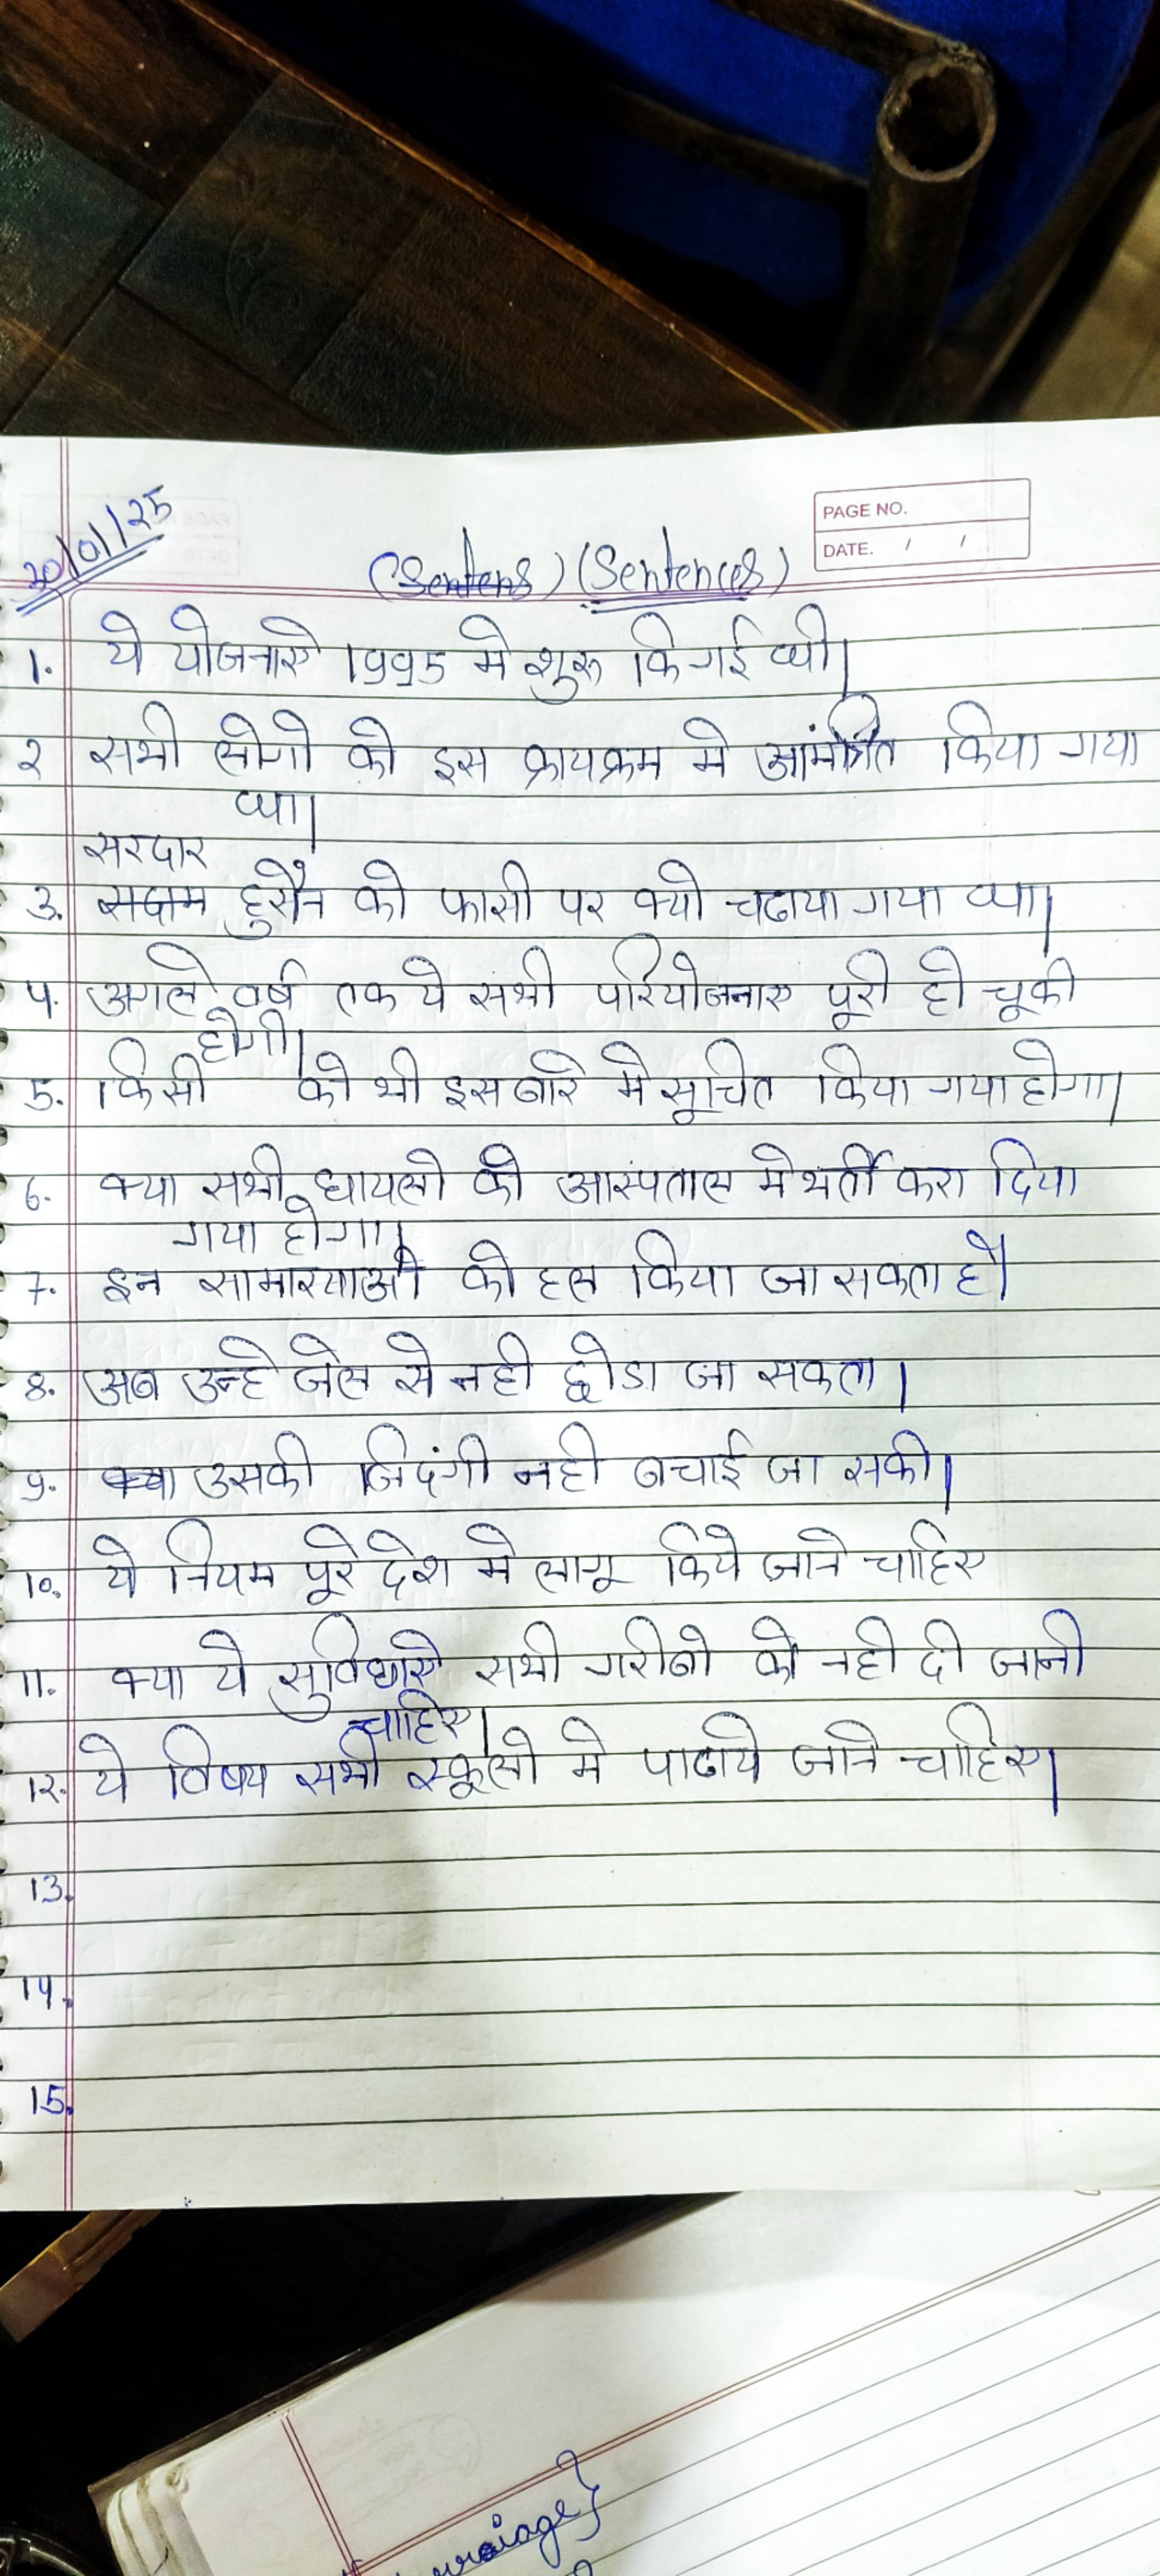 20/01/25
PAGE NO.
DATE. / /
(Sentens) (Sentences)
1. ये योजनाऐ 1995 मे शुरू कि गई थी।
2 सभी लोगो को इस क्रायक्रम मे आंमत्रित किया गया
था।
सरदार
3. सद्दाम हुसैन को फासी पर क्यो चढाया गया था।
4. अगले वर्ष तक ये सभी परियोजनाए पूरी हो चूकी
होगी।
5. किसी को भी इस बारे मे सूचित किया गया होगा।
6. क्या सभी घायलो को आस्पताल मे भर्ती करा दिया
गया होगा।
7. इन सामास्याओ को हल किया जा सकता है।
8. अब उन्हे जेल से नही छोडा जा सकता।
9. क्या उसकी जिदंगी नही बचाई जा सकी।
10. ये नियम पूरे देश मे लागू किये जाने चाहिए
11. क्या ये सुविधाऐ सभी गरीबो को नही दी जानी
चाहिए।
12. ये विषय सभी स्कूलो मे पाढाये जाने चाहिए।
13.
14.
15.